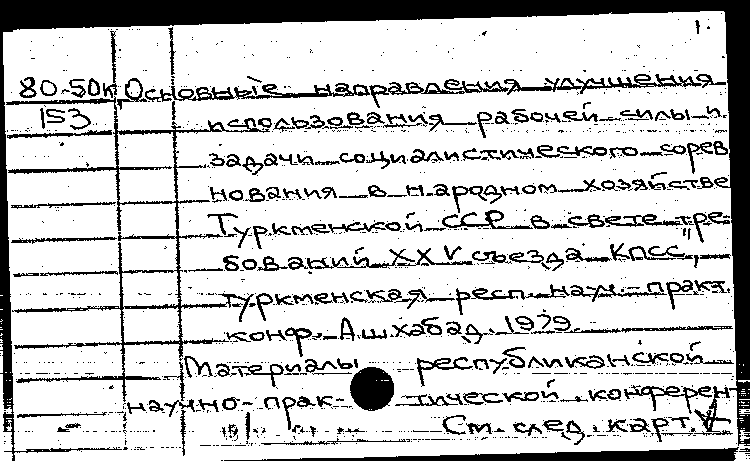 1.
80-50к „Основные направления улучшения
153 использования рабочей силы и
задачи социалистического сорев
нования в народном хозяйстве
Туркменской ССР в свете тре-
бований XXV съезда КПСС",
туркменская респ. науч.-практ.
конф. Ашхабад. 1979.
Материалы республиканской
научно-прак- тической конферен
См. след. карт.